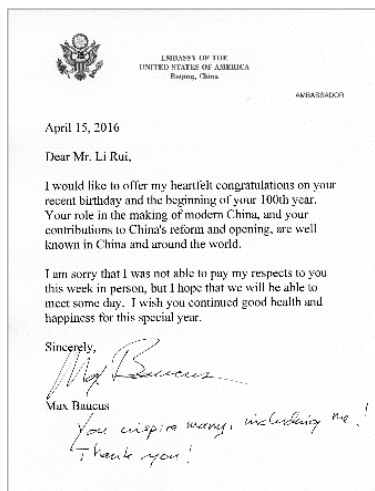 EMBASSY OF THE
UNITED STATES OF AMERICA
Beijing, China
AMBASSADOR
April 15, 2016
Dear Mr. Li Rui,
I would like to offer my heartfelt congratulations on your
recent birthday and the beginning of your 100th year.
Your role in the making of modern China, and your
contributions to China's reform and opening, are well
known in China and around the world.
I am sorry that I was not able to pay my respects to you
this week in person, but I hope that we will be able to
meet some day. I wish you continued good health and
happiness for this special year.
Sincerely,
Max Baucus
Max Baucus
You inspire many, including me!
Thank you!